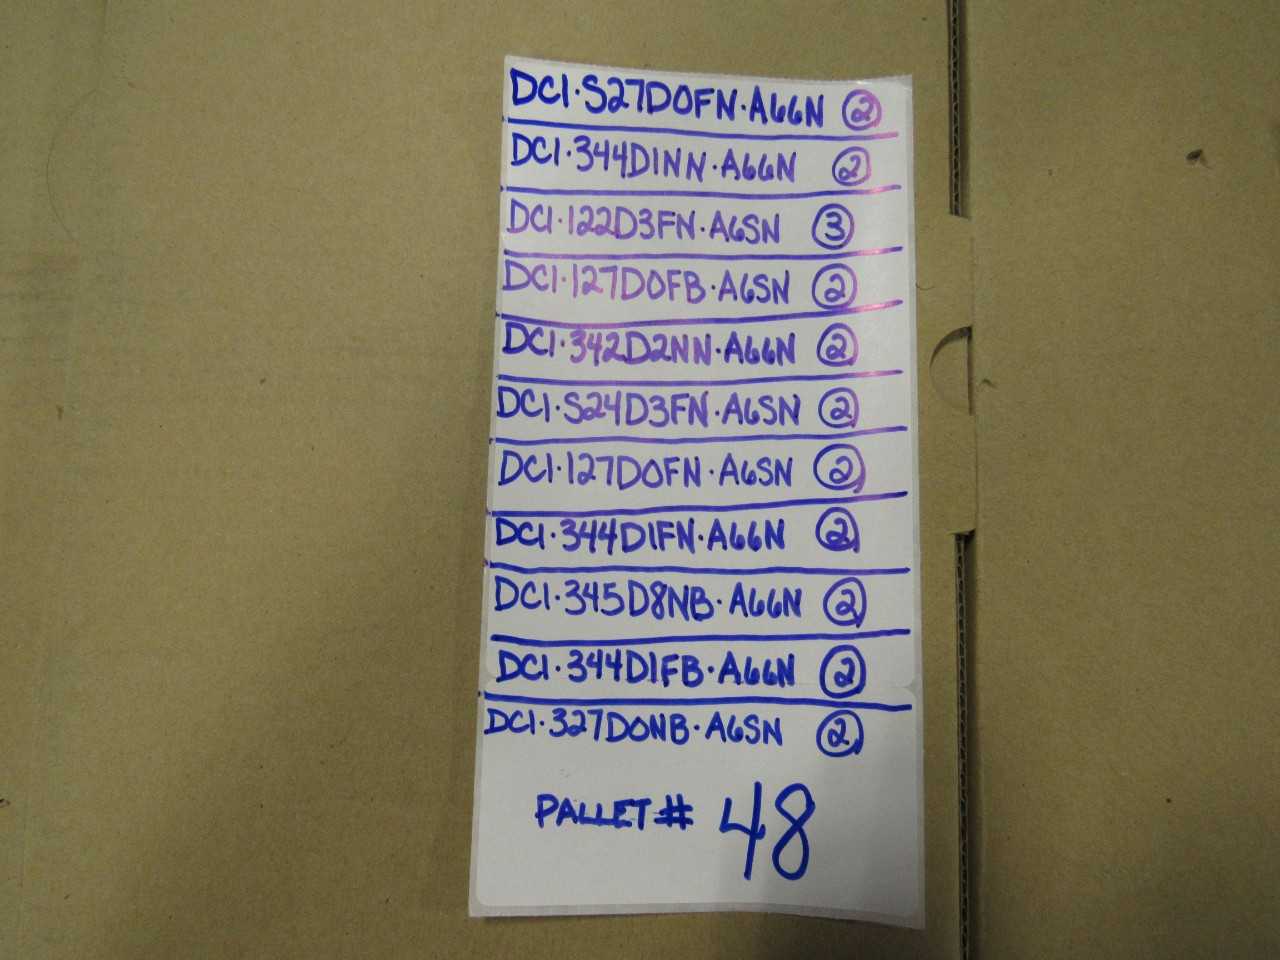 DC1·S27D0FN·A66N 2
DC1·344D1NN·A66N 2
DC1·122D3FN·A6SN 3
DC1·127D0FB·A6SN 2
DC1·342D2NN·A66N 2
DC1·S24D3FN·A6SN 2
DC1·127D0FN·A6SN 2
DC1·344D1FN·A66N 2
DC1·345D8NB·A66N 2
DC1·344D1FB·A66N 2
DC1·327D0NB·A6SN 2
PALLET# 48